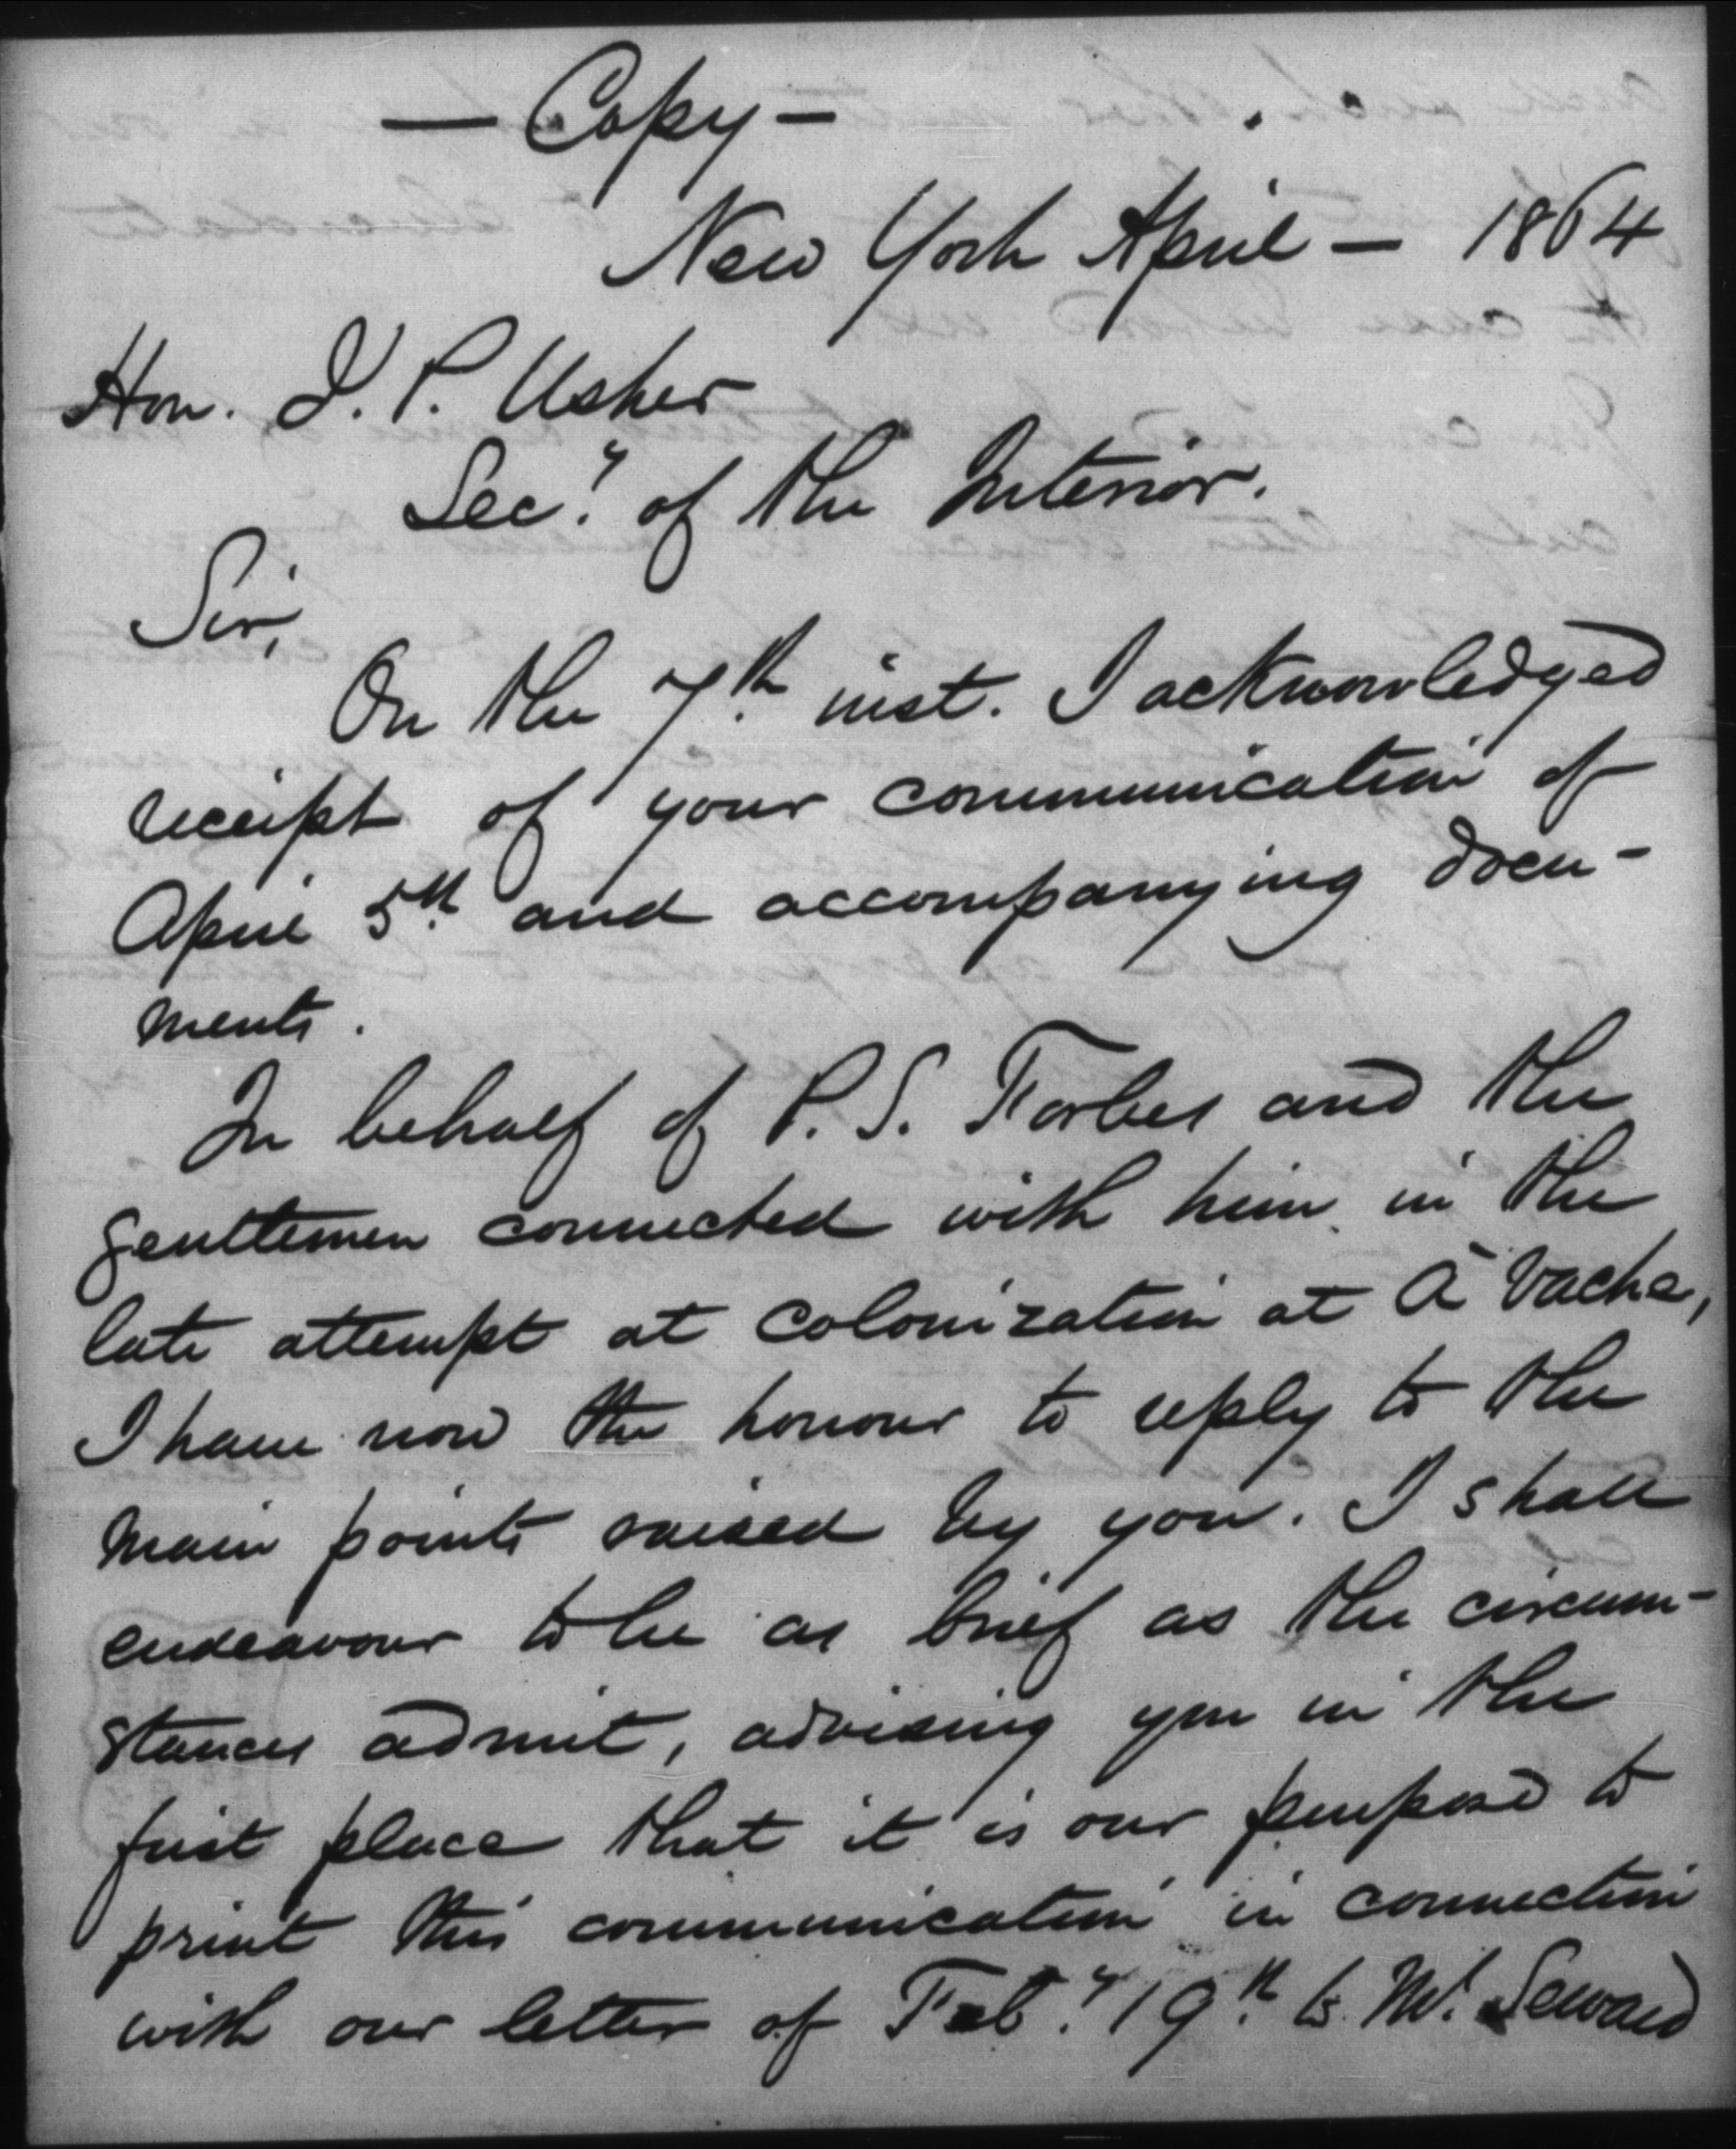 — Copy —
New York April — 1864
Hon. J. P. Usher
Secy. of the Interior.
Sir,
On the 7th inst. I acknowledged
receipt of your communication of
April 5th and accompanying docu-
ments.
In behalf of P. S. Forbes and the
gentlemen connected with him in the
late attempt at colonization at A Vache,
I have now the honour to reply to the
main points raised by you. I shall
endeavour to be as brief as the circum-
stances admit, advising you in the
first place that it is our purpose to
print this communication in connection
with our letter of Feby. 19th to Mr. Seward